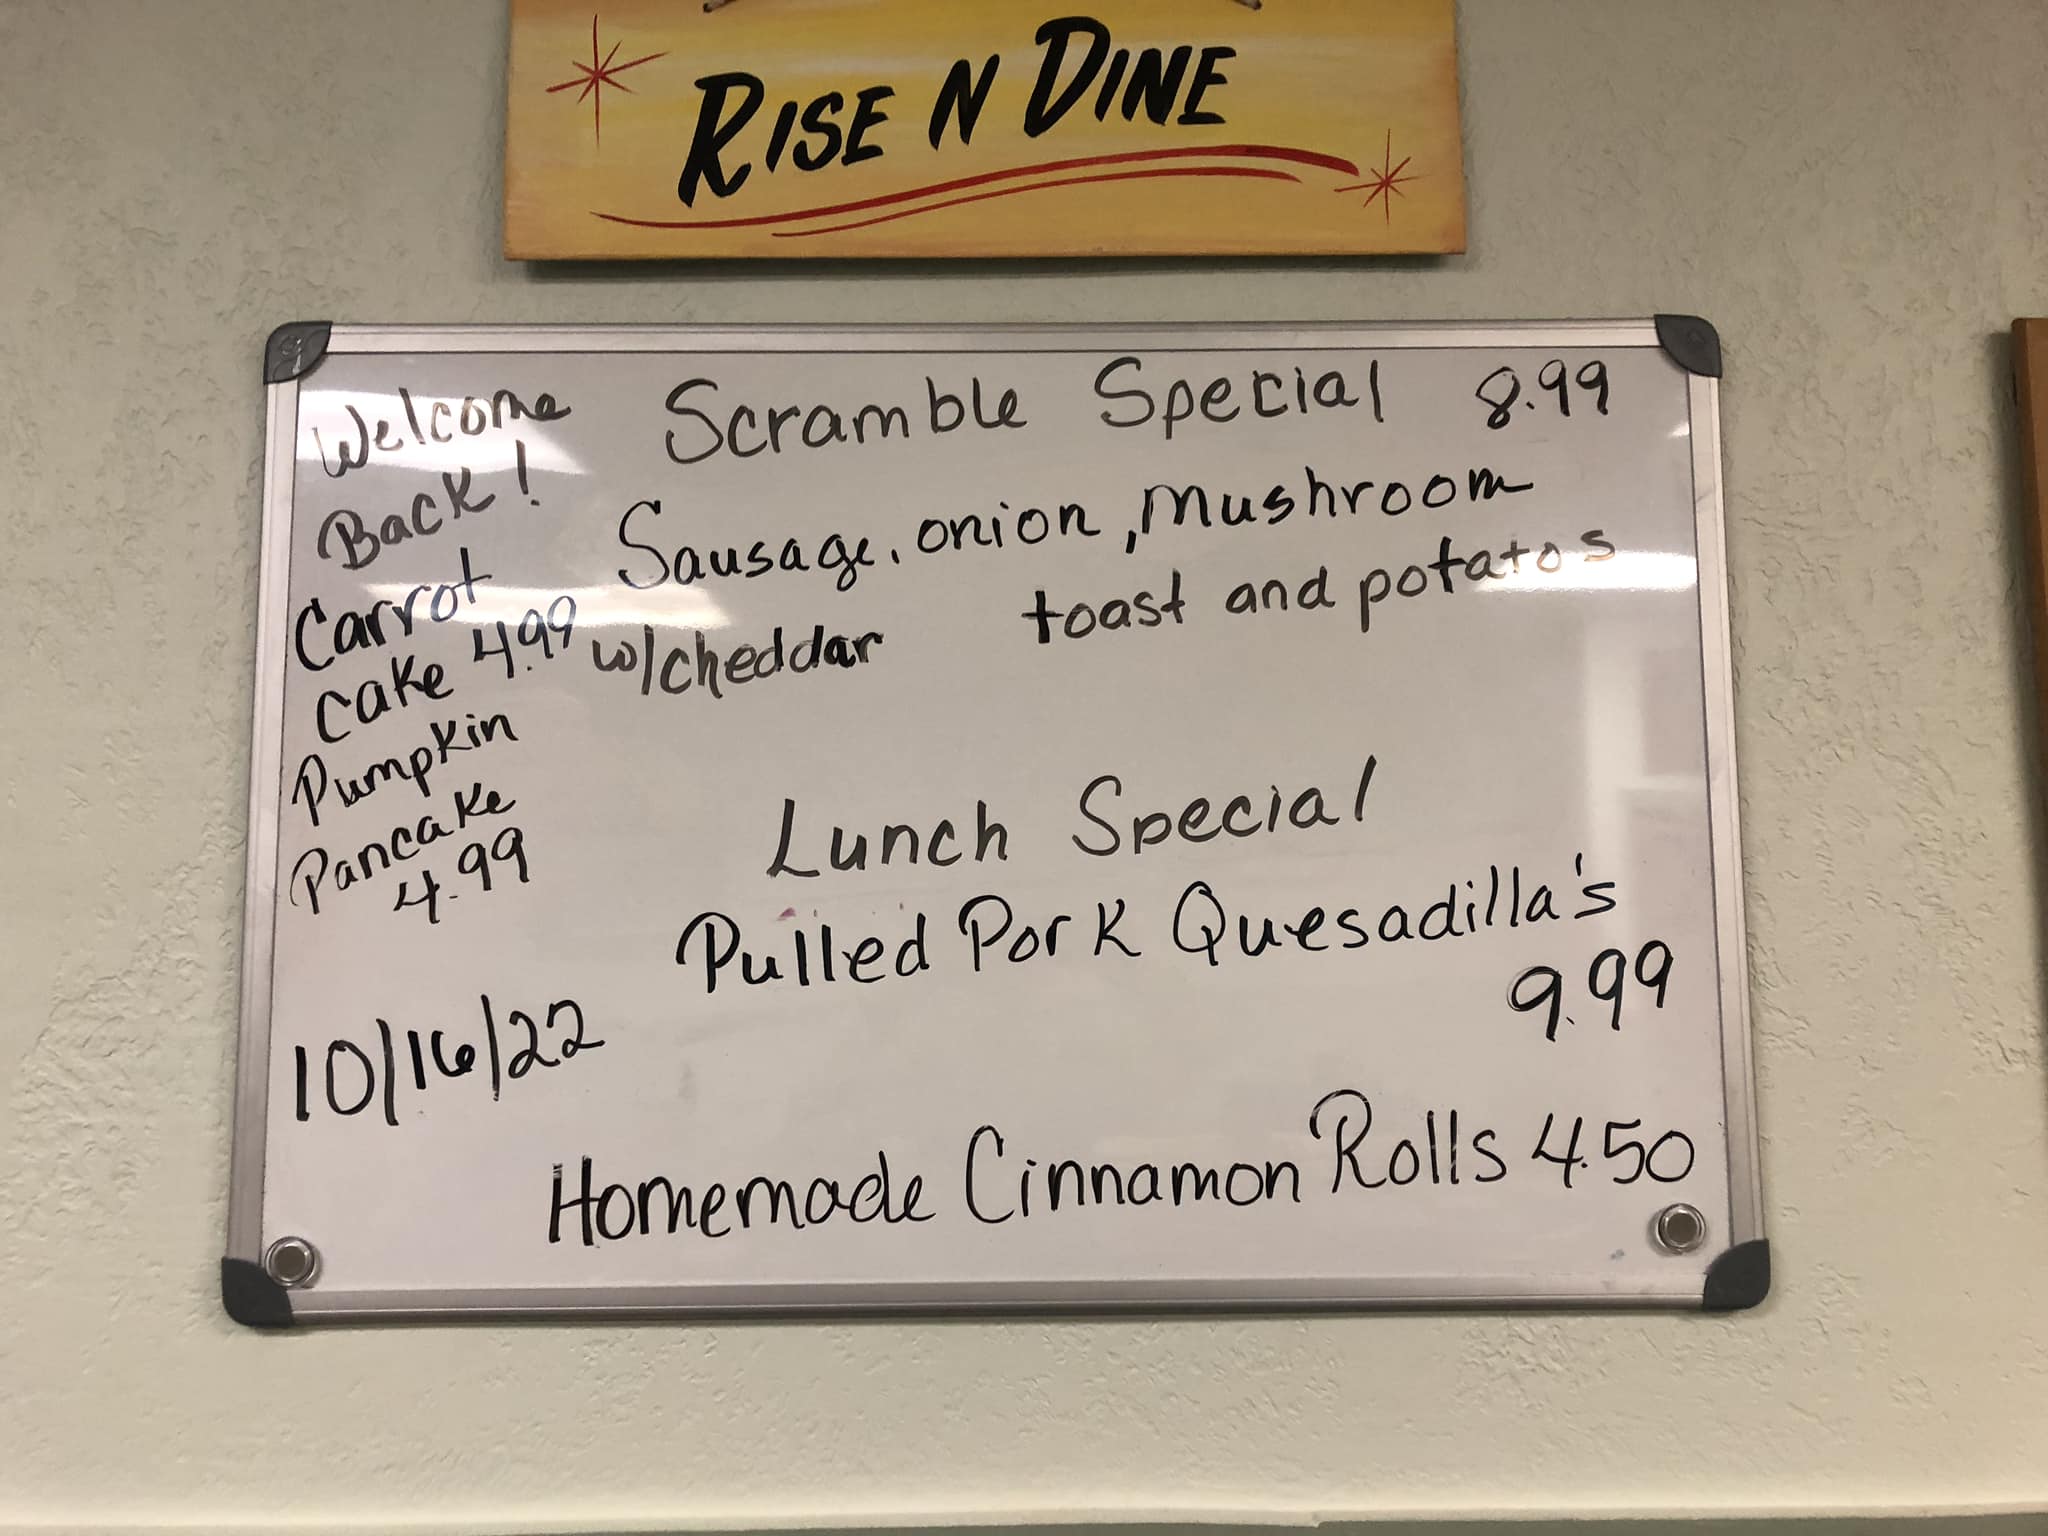 RISE N DINE
Welcome
Back!
Carrot
cake 4.99
Pumpkin
Pancake
4.99
10/16/22
Scramble Special 8.99
Sausage, onion, Mushroom
w/cheddar toast and potatos
Lunch Special
Pulled Pork Quesadilla's
9.99
Homemade Cinnamon Rolls 4.50